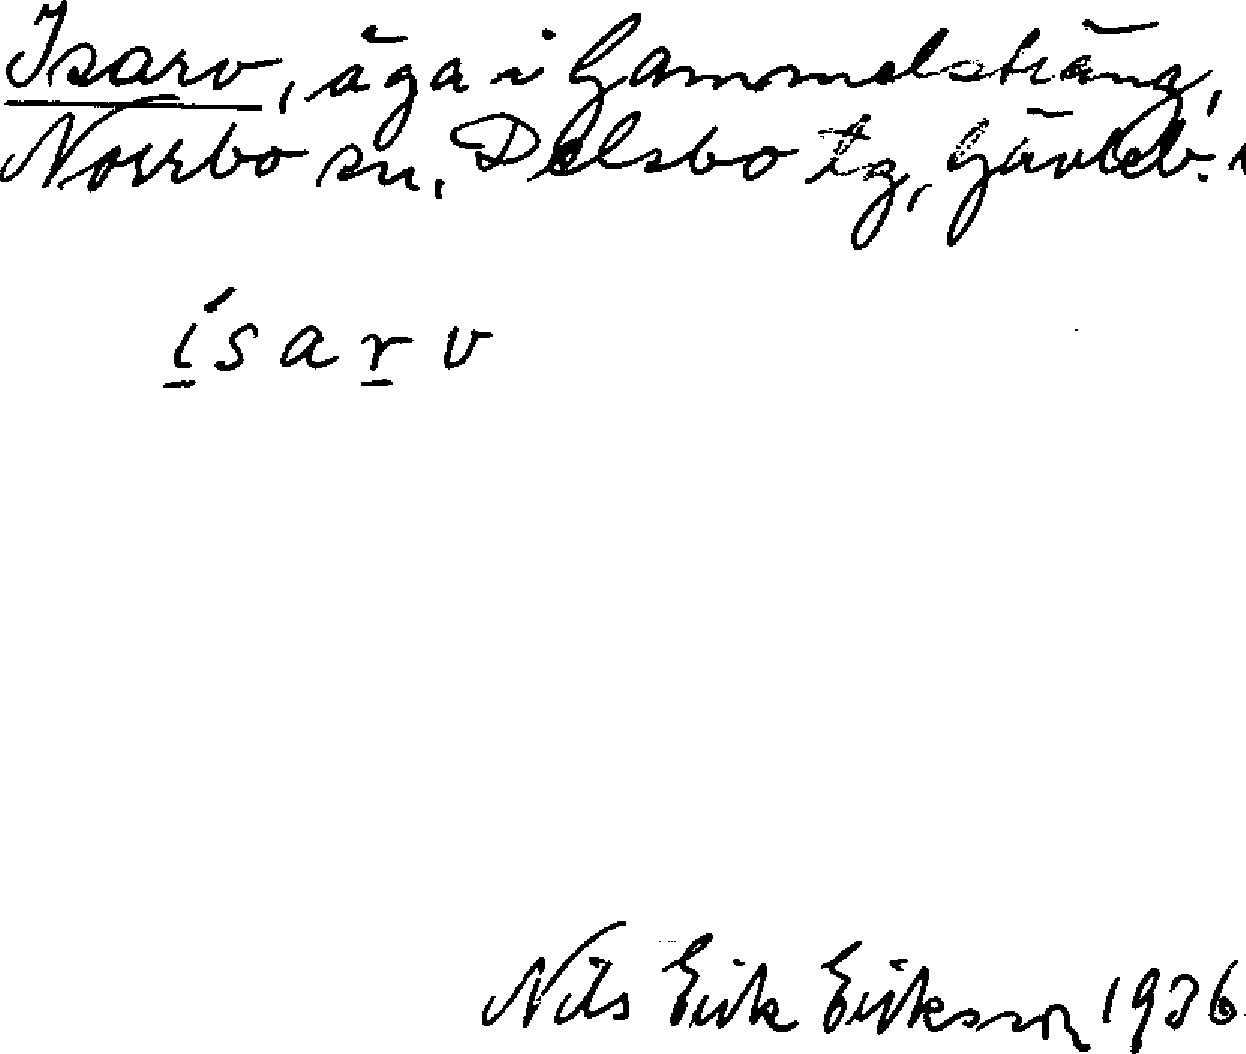 Isarv, äga i Gammelsträng,
Norrbo sn. Delsbo tg, Gävleb.
ísarv
Nils Erik Eriksson 1936